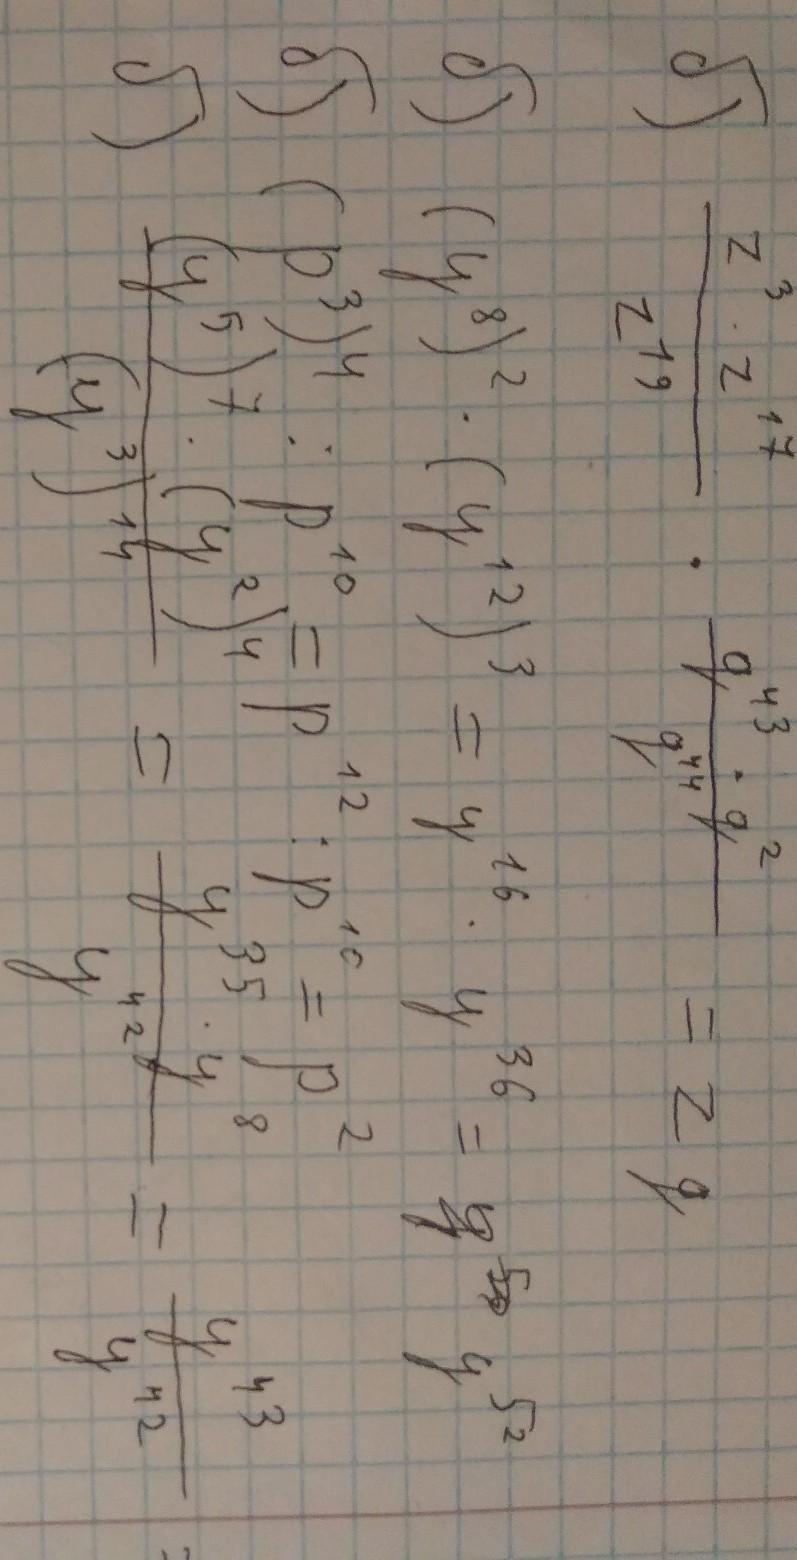 б) z³ · z¹⁷ / z¹⁹ · q⁴³ · q² / q⁴⁴ = zq
б) (y⁸)² · (y¹²)³ = y¹⁶ · y³⁶ = y⁵²
б) (p³)⁴ : p¹⁰ = p¹² : p¹⁰ = p²
б) (y⁵)⁷ · (y²)⁴ / (y³)¹⁴ = y³⁵ · y⁸ / y⁴² = y⁴³ / y⁴² =